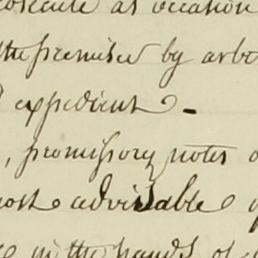 prosecute as occasion
the premises by arbi
expedient -
, promissory notes o
most advisable
in the hands of